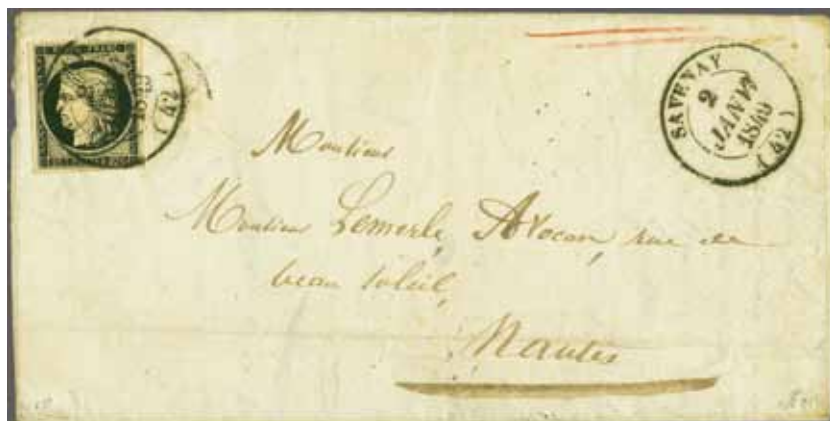 REPUB. FRANC
(42)
SAVENAY
2
JANVR
1849
(42)
Monsieur
Monsieur Lemerle, Avocat, rue de
beau soleil,
Nantes